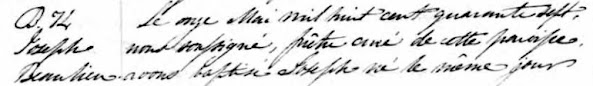 B. 74 Le onze Mai mil huit cent quarante sept,
Joseph nous soussigné, prêtre curé de cette paroisse,
Beaulieu avons baptisé Joseph né le même jour